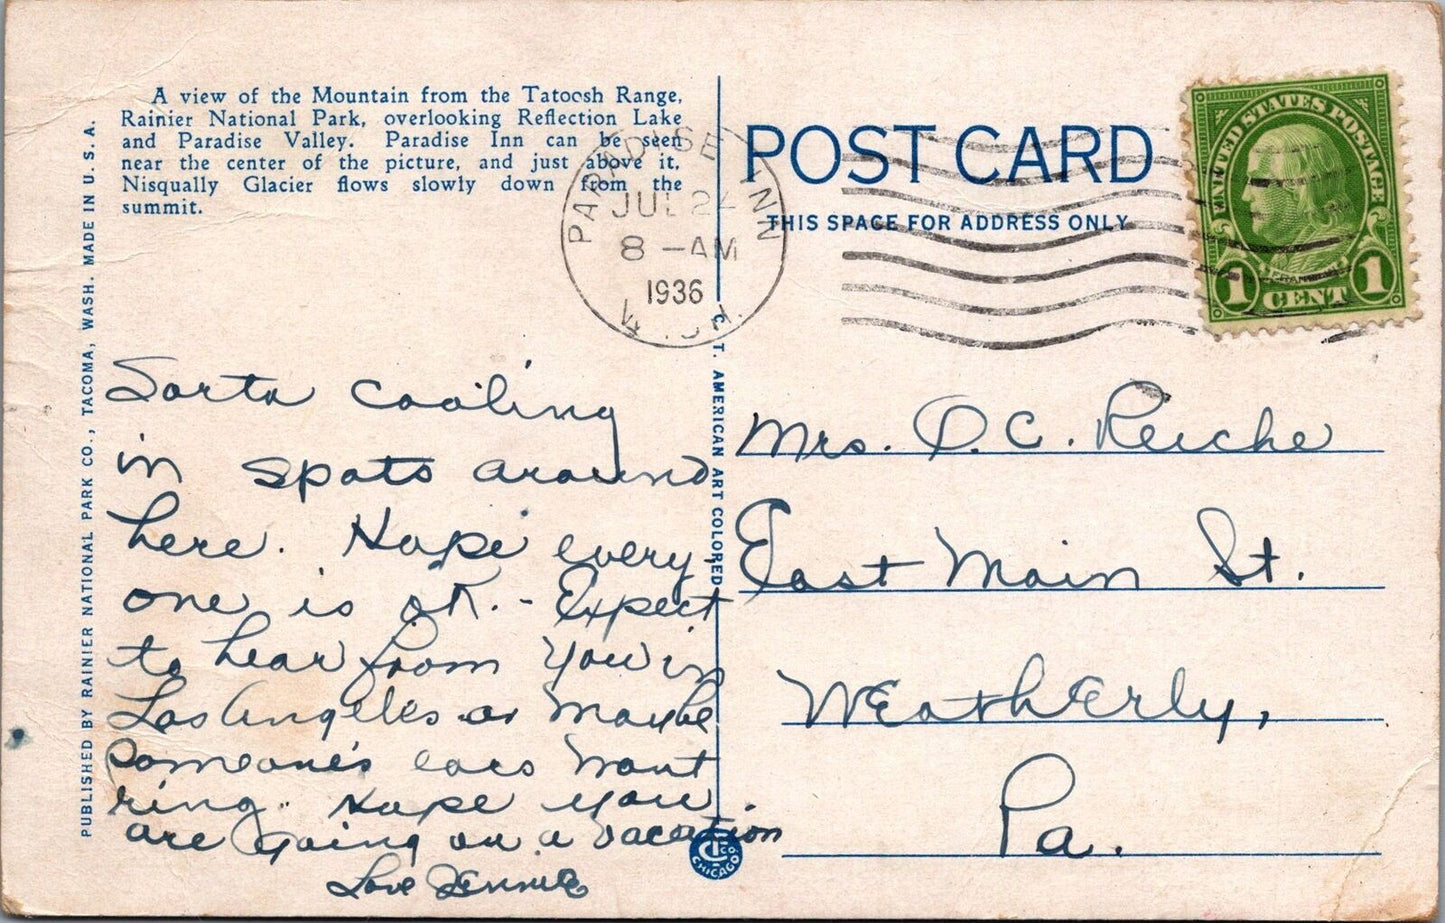 A view of the Mountain from the Tatoosh Range,
Rainier National Park, overlooking Reflection Lake
and Paradise Valley. Paradise Inn can be seen
near the center of the picture, and just above it.
Nisqually Glacier flows slowly down from the
summit.
PUBLISHED BY RAINIER NATIONAL PARK CO., TACOMA, WASH. MADE IN U. S. A.
PARADISE INN
JUL 24
8 - AM
1936
POST CARD
THIS SPACE FOR ADDRESS ONLY
UNITED STATES POSTAGE
FRANKLIN
1 CENT 1
C. T. AMERICAN ART COLORED
Sorta cooling
in spots around
here. Hope every
one is OK. - Expect
to hear from you in
Los Angeles or maybe
someone's ears wont
ring. Hope you
are going on a vacation
Love Jennie
Mrs. O. C. Reiche
East Main St.
Weatherly,
Pa.
CT CO.
CHICAGO